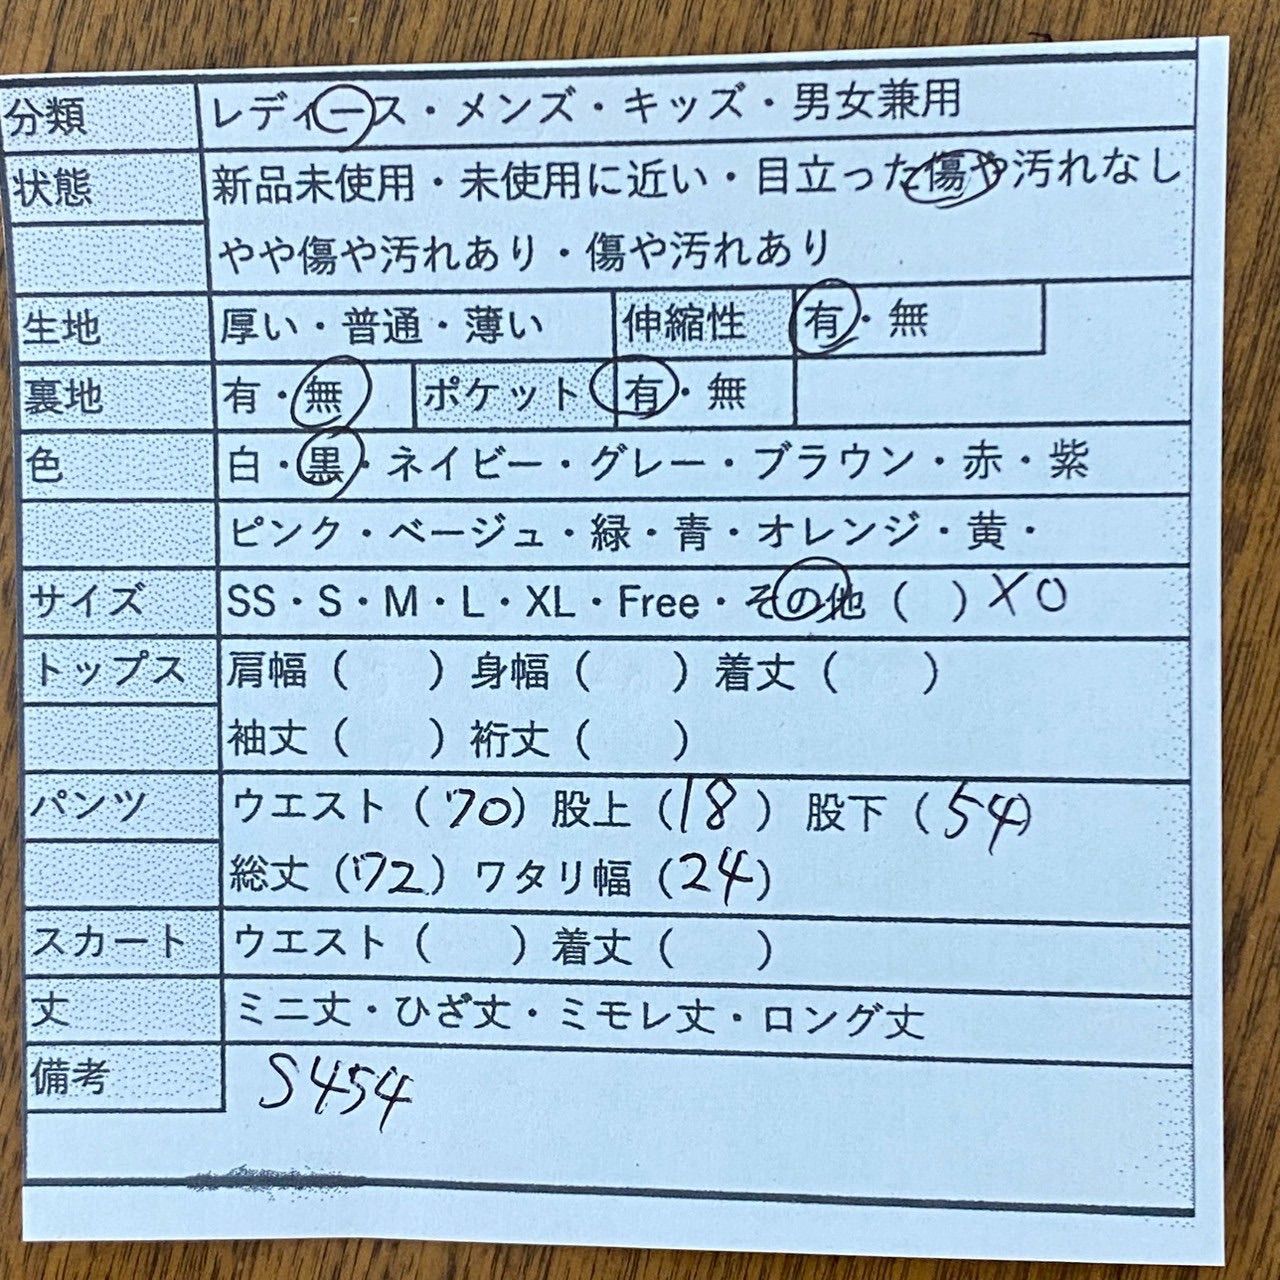 分類 レディース・メンズ・キッズ・男女兼用
状態 新品未使用・未使用に近い・目立った傷や汚れなし
やや傷や汚れあり・傷や汚れあり
生地 厚い・普通・薄い 伸縮性 有・無
裏地 有・無 ポケット 有・無
色 白・黒・ネイビー・グレー・ブラウン・赤・紫
ピンク・ベージュ・緑・青・オレンジ・黄・
サイズ SS・S・M・L・XL・Free・その他 ( ) XO
トップス 肩幅 ( ) 身幅 ( ) 着丈 ( )
袖丈 ( ) 裄丈 ( )
パンツ ウエスト (70) 股上 (18) 股下 (54)
総丈 (72) ワタリ幅 (24)
スカート ウエスト ( ) 着丈 ( )
丈 ミニ丈・ひざ丈・ミモレ丈・ロング丈
備考 S454